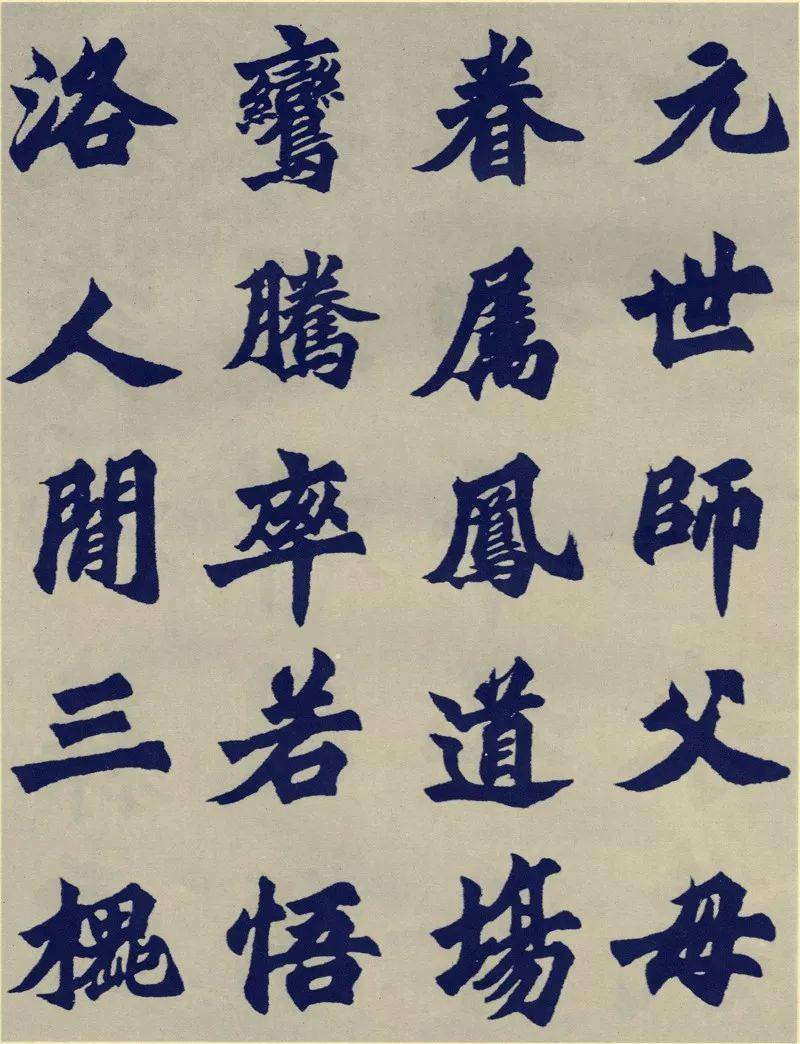 元世師父母
眷属鳳道場
鸞騰率若悟
洛人閒三槐